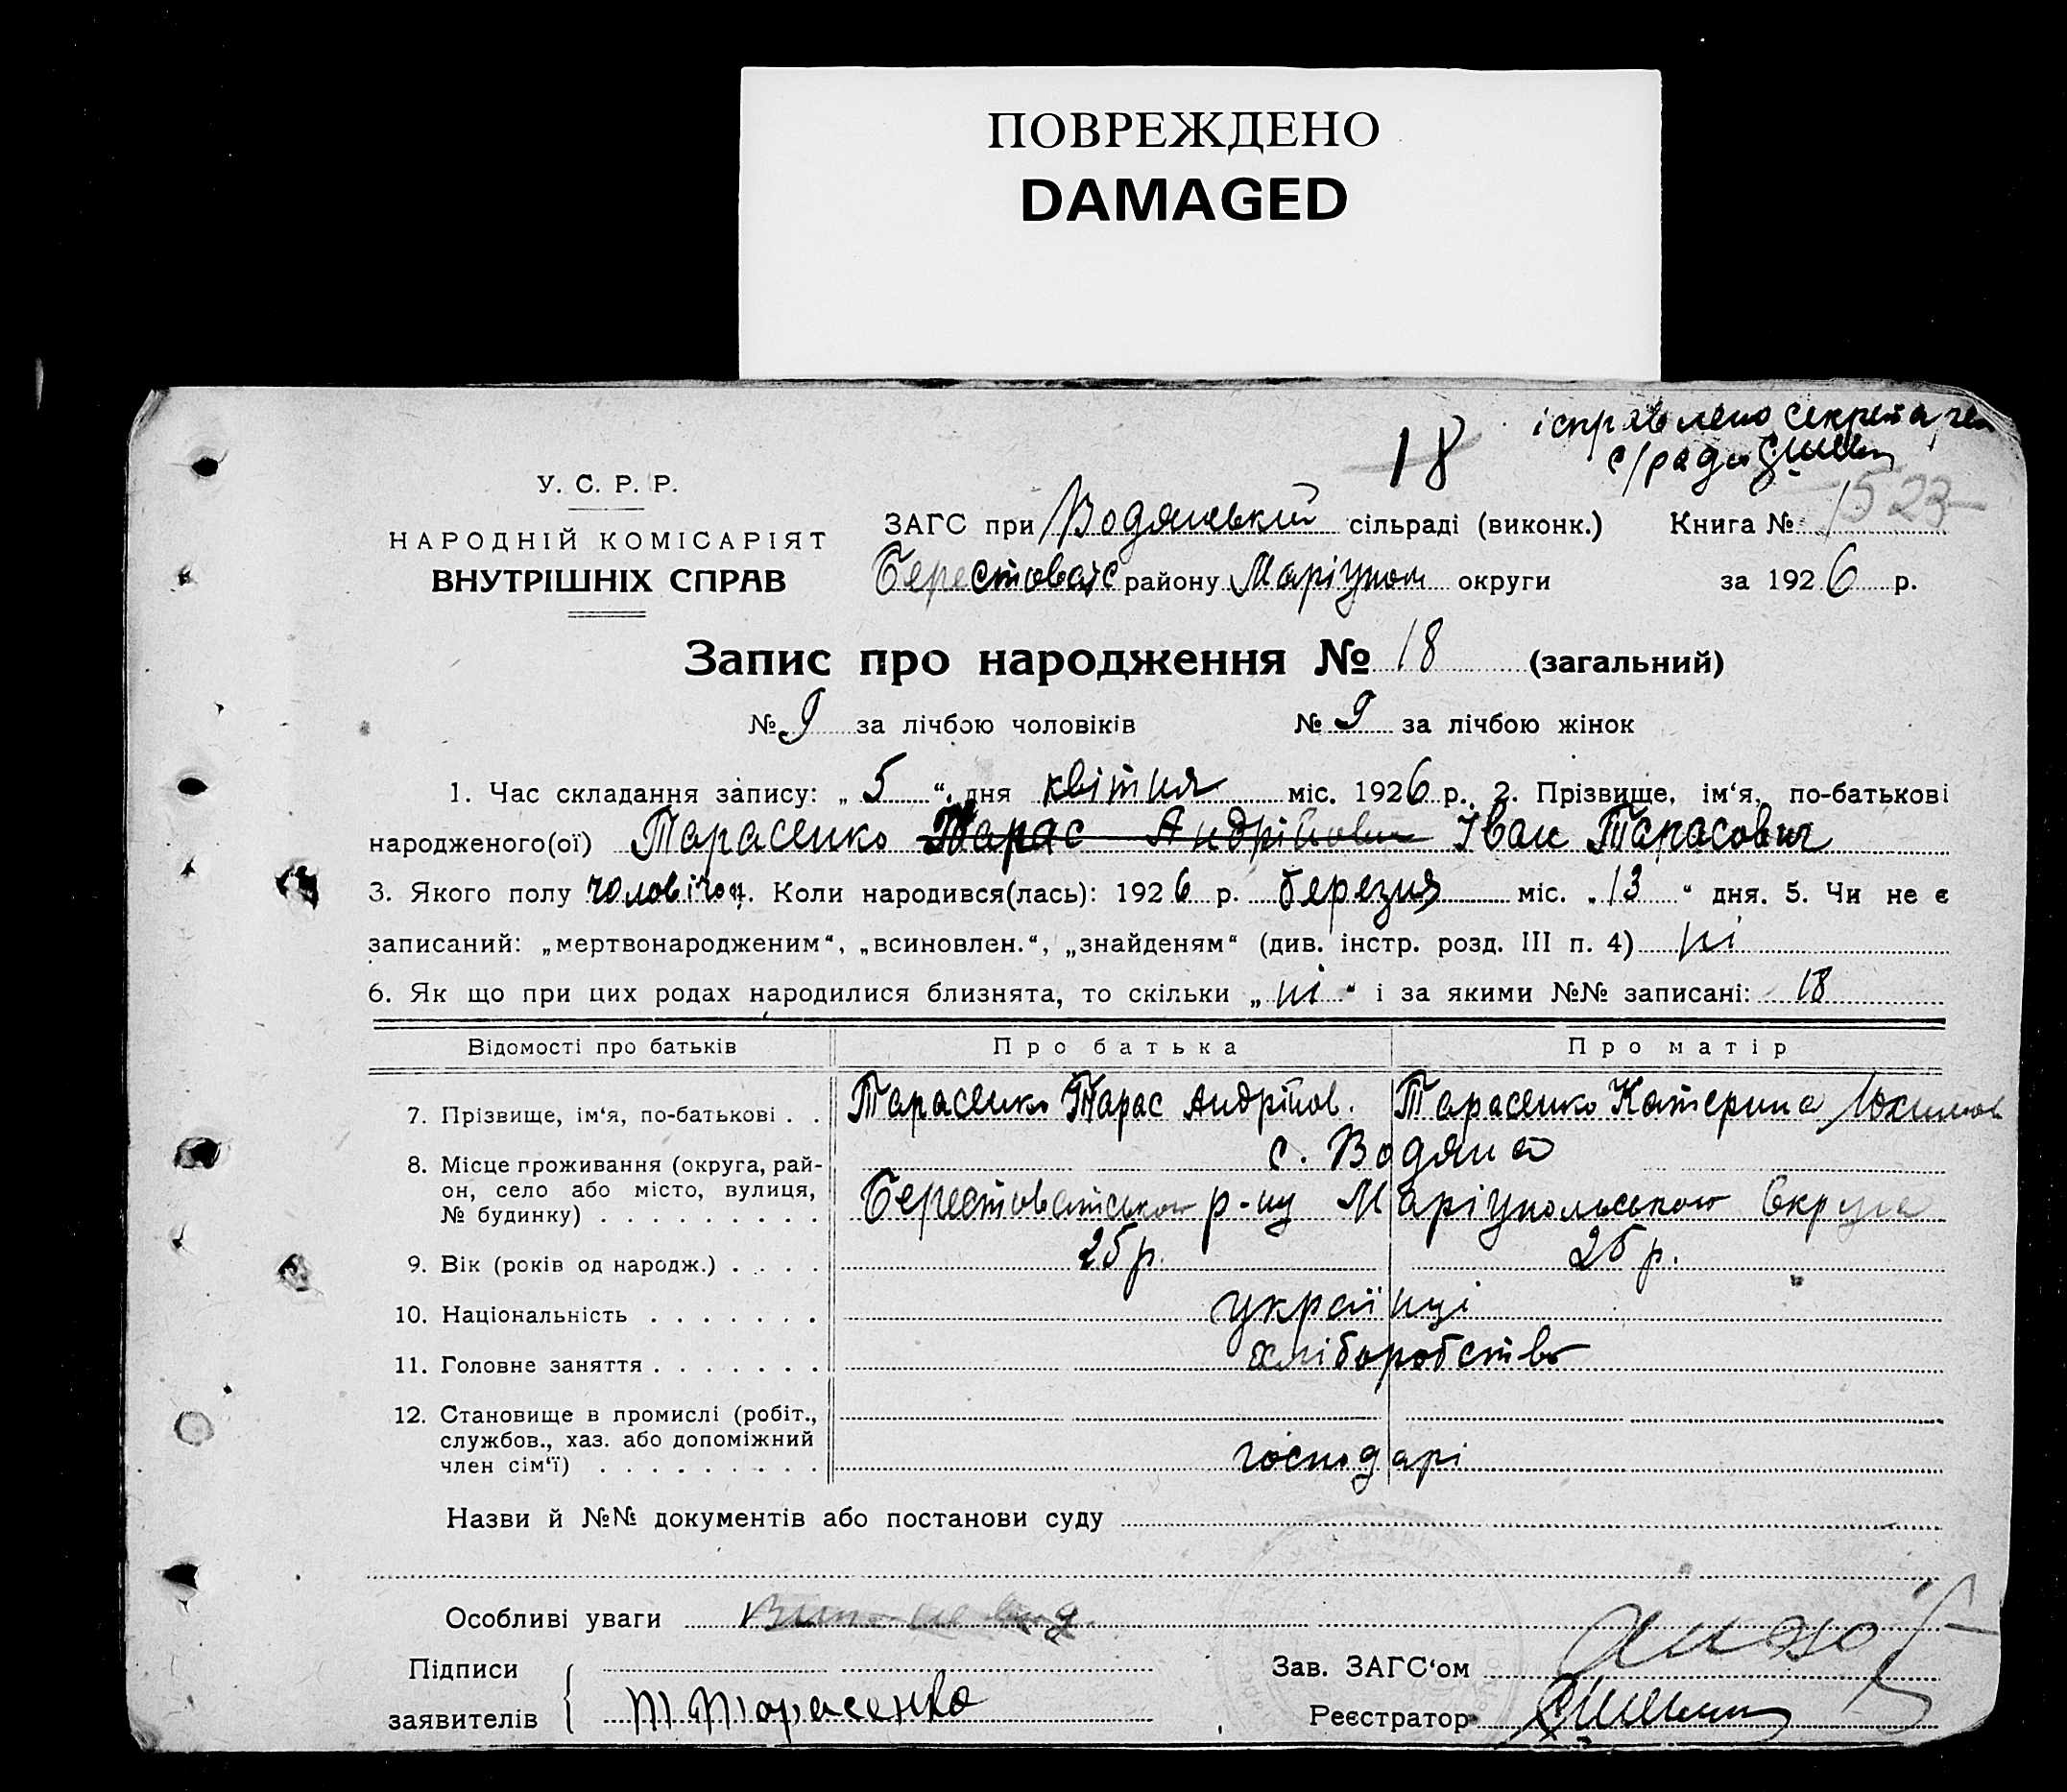 ПОВРЕЖДЕНО
DAMAGED
18
ісправлено секретарем
с/ради
У. С. Р. Р.
НАРОДНІЙ КОМІСАРІЯТ
ВНУТРІШНІХ СПРАВ
ЗАГС при Водянській сільраді (виконк.) Книга № 1523
Берестоватс району Маріупол округи за 1926 р.
Запис про народження № 18 (загальний)
№ 9 за лічбою чоловіків № 9 за лічбою жінок
1. Час складання запису: „5“ дня квітня міс. 1926 р. 2. Прізвище, ім‘я, по-батькові
народженого(ої) Тарасенко Тарас Андрійович Іван Тарасович
3. Якого полу чоловічої 4. Коли народився(лась): 1926 р. березня міс. „13“ дня. 5. Чи не є
записаний: „мертвонародженим“, „всиновлен.“, „знайденям“ (див. інстр. розд. III п. 4) ні
6. Як що при цих родах народилися близнята, то скільки „ні“ і за якими №№ записані: 18
Відомості про батьків Про батька Про матір
7. Прізвище, ім‘я, по-батькові . . Тарасенко Тарас Андрійов. Тарасенко Катерина Юхимов
8. Місце проживання (округа, рай-
он, село або місто, вулиця,
№ будинку) . . . . . . . . .
с. Водяна
Берестоватського р-ну Маріупольської Округи
9. Вік (років од народж.) . . . . 25 р. 25 р.
10. Національність . . . . . . . українці
11. Головне заняття . . . . . . . хліборобство
12. Становище в промислі (робіт.,
службов., хаз. або допоміжний
член сім‘ї) . . . . . . . . . господарі
Назви й №№ документів або постанови суду
Особливі уваги
Підписи
заявителів Т Тарасенко
Зав. ЗАГС‘ом
Реєстратор